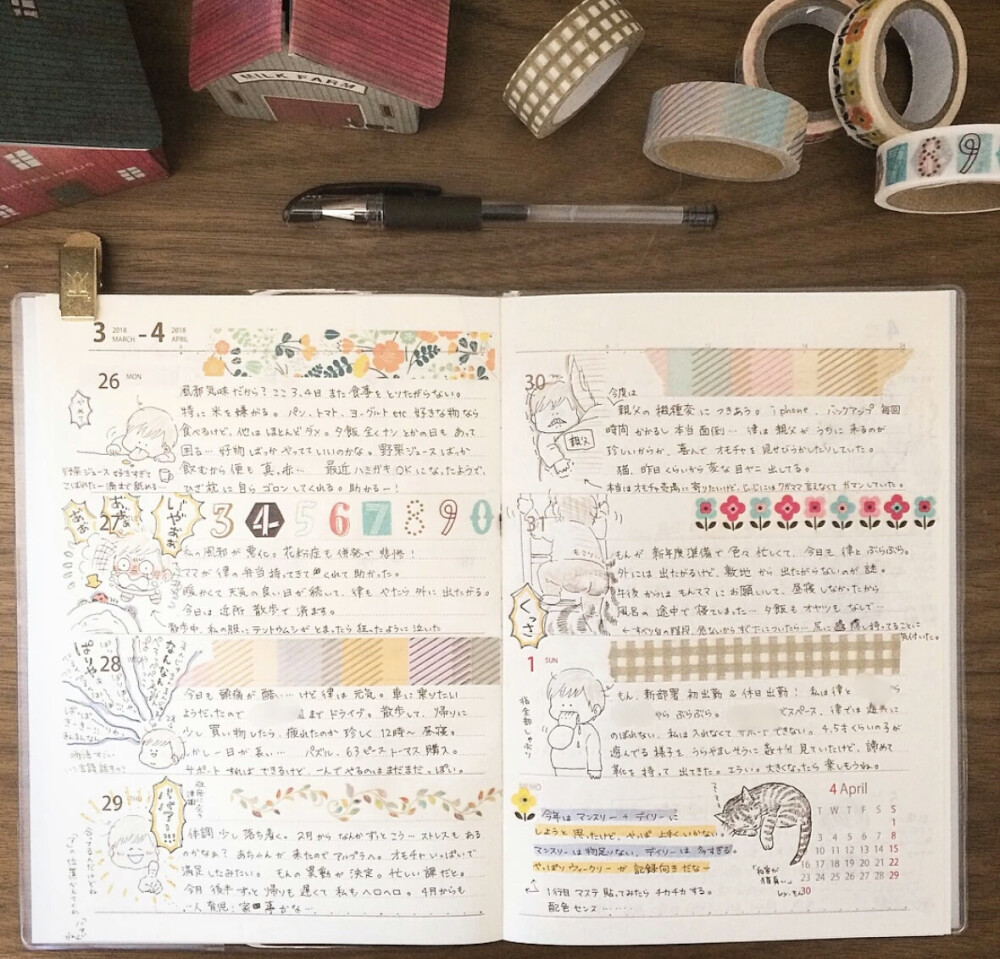 MILK FARM
8 9
3 2018 MARCH - 4 2018 APRIL
26 MON
風邪気味だから？ここ3、4日また食事をとりたがらない。
特に米を嫌がる。パン、トマト、ヨーグルトetc 好きな物なら
食べるけど、他はほとんどダメ。夕飯全くナシとかの日もあって
困る…好物ばっかやってていいのかな。野菜ジュースばっか
飲むから便も真っ赤… 最近ハミガキOKになったようで、
ひざ枕に自らゴロンしてくれる。助かるー！
野菜ジュース
27
いやぁぁ
3 4 5 6 7 8 9 0
私の風邪が悪化。花粉症も併発で悲惨！
ママが律の弁当持ってきてくれて助かった。
暖かくて天気の良い日が続いて、律もやたら外に出たがる。
今日は近所散歩で済ます。
散歩中、私の服にテントウムシがとまったら狂ったように泣いた
28
なんなん
ぱりや
今日も頭痛が酷い…けど律は元気。車に乗りたい
ようだったので までドライブ。散歩して、帰りに
少し買い物したら、疲れたのか珍しく12時〜昼寝。
しかし一日が長い… パズル、63ピーストーマス購入。
サポートすればできるけど、一人でやるのはまだまだっぽい。
29
体調少し落ち着く。2月からなんかずっとこう…ストレスもある
のかなぁ？あちゃんが来たのでアルプラへ。オモチャいっぱいで
満足したみたい。もんの異動が決定。忙しい課だと。
今月後半ずっと帰りも遅くて私もヘロヘロ。4月からも
一人育児・家事かなー
30
今度は
親父の機種変につきあう。iphone、バックアップ毎回
時間かかるし本当面倒…律は親父がうちに来るのが
珍しいからか、喜んでオモチャを見せびらかしたりしていた。
猫、昨日くらいから変な目ヤニ出してる。
本当はオモチャ売場に寄りたいけど、じぃじにはワガママ言えなくてガマンしていた。
親父
31
もんが新年度準備で色々忙しくて、今日も律とぶらぶら。
外には出たがるけど、敷地から出たがらないのが謎。
午後からはもんママにお願いして、昼寝しなかったから
風呂の途中で寝てしまった…夕飯もオヤツもなしで…
くっさ
気付いた。
1 SUN
もん、新部署初出勤＆休日出勤！私は律と
やらぶらぶら。
のぼれない、私は入れなくてサポートできない。4、5才くらいの子が
遊んでる様子をうらやましそうに数十分見ていたけど、諦めて
靴を持って出てきた。えらい。大きくなったら楽しもうね。
今年はマンスリー＋デイリーに
しようと思ったけど、やっぱ上手くいかない。
マンスリーは物足りない、デイリーは多すぎる。
やっぱりウィークリーが記録向きだな〜
1行目マステ貼ってみたらチカチカする。
配色センス……
4 April
T W T F S S
1
3 4 5 6 7 8
10 11 12 13 14 15
16 17 18 19 20 21 22
23 24 25 26 27 28 29
30